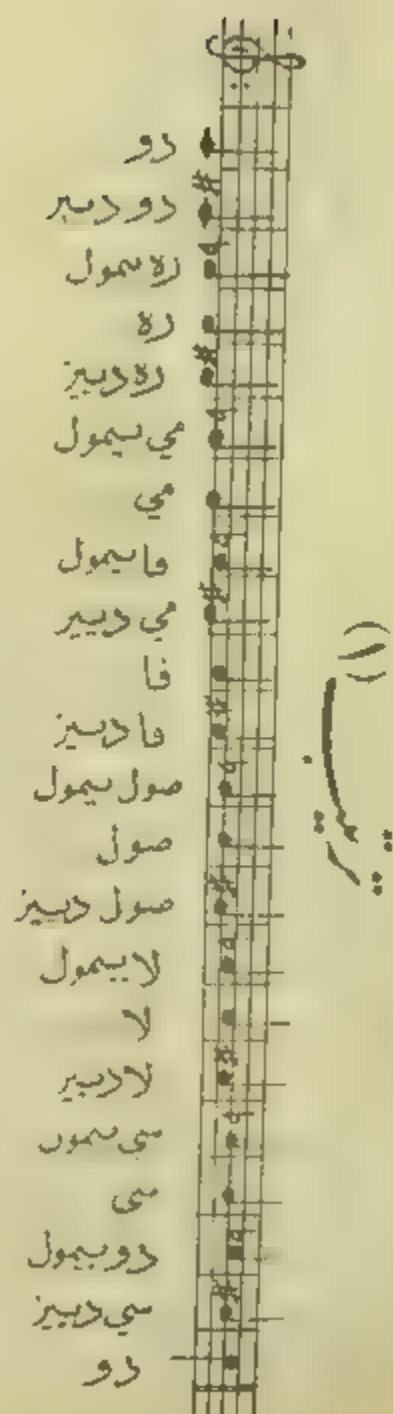 دو
دو دييز
ره بيمول
ره
ره دييز
مي بيمول
مي
فا بيمول
مي دييز
فا
فا دييز
صول بيمول
صول
صول دييز
لا بيمول
لا
لا دييز
سي بيمول
سي
دو بيمول
سي دييز
دو
(١)